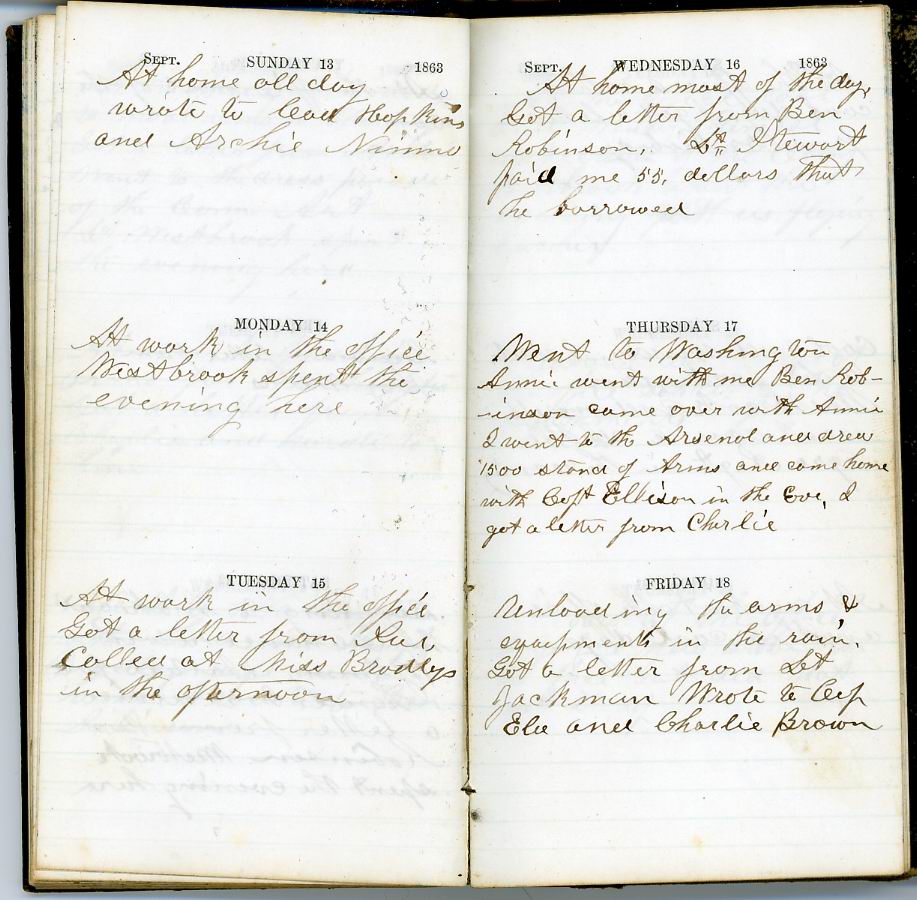 SEPT. SUNDAY 13 1863
At home all day
wrote to Hopkins
and Archie Nimmo
MONDAY 14
At work in the office
Westbrook spent the
evening here
TUESDAY 15
At work in the office
Got a letter from
Called at Miss Bradleys
in the afternoon
SEPT. WEDNESDAY 16 1863
At home most of the day,
Got a letter from Ben
Robinson. Lt. Stewart
paid me 55, dollars that
he borrowed
THURSDAY 17
Went to Washington
Annie went with me Ben Rob-
-inson came over with Annie
I went to the Arsenal and drew
1500 stand of Arms and came home
with Capt Ellison in the Eve, I
got a letter from Charlie
FRIDAY 18
Unloading the arms &
equipments in the rain.
Got a letter from Lt
Jackman Wrote to
and Charlie Brown